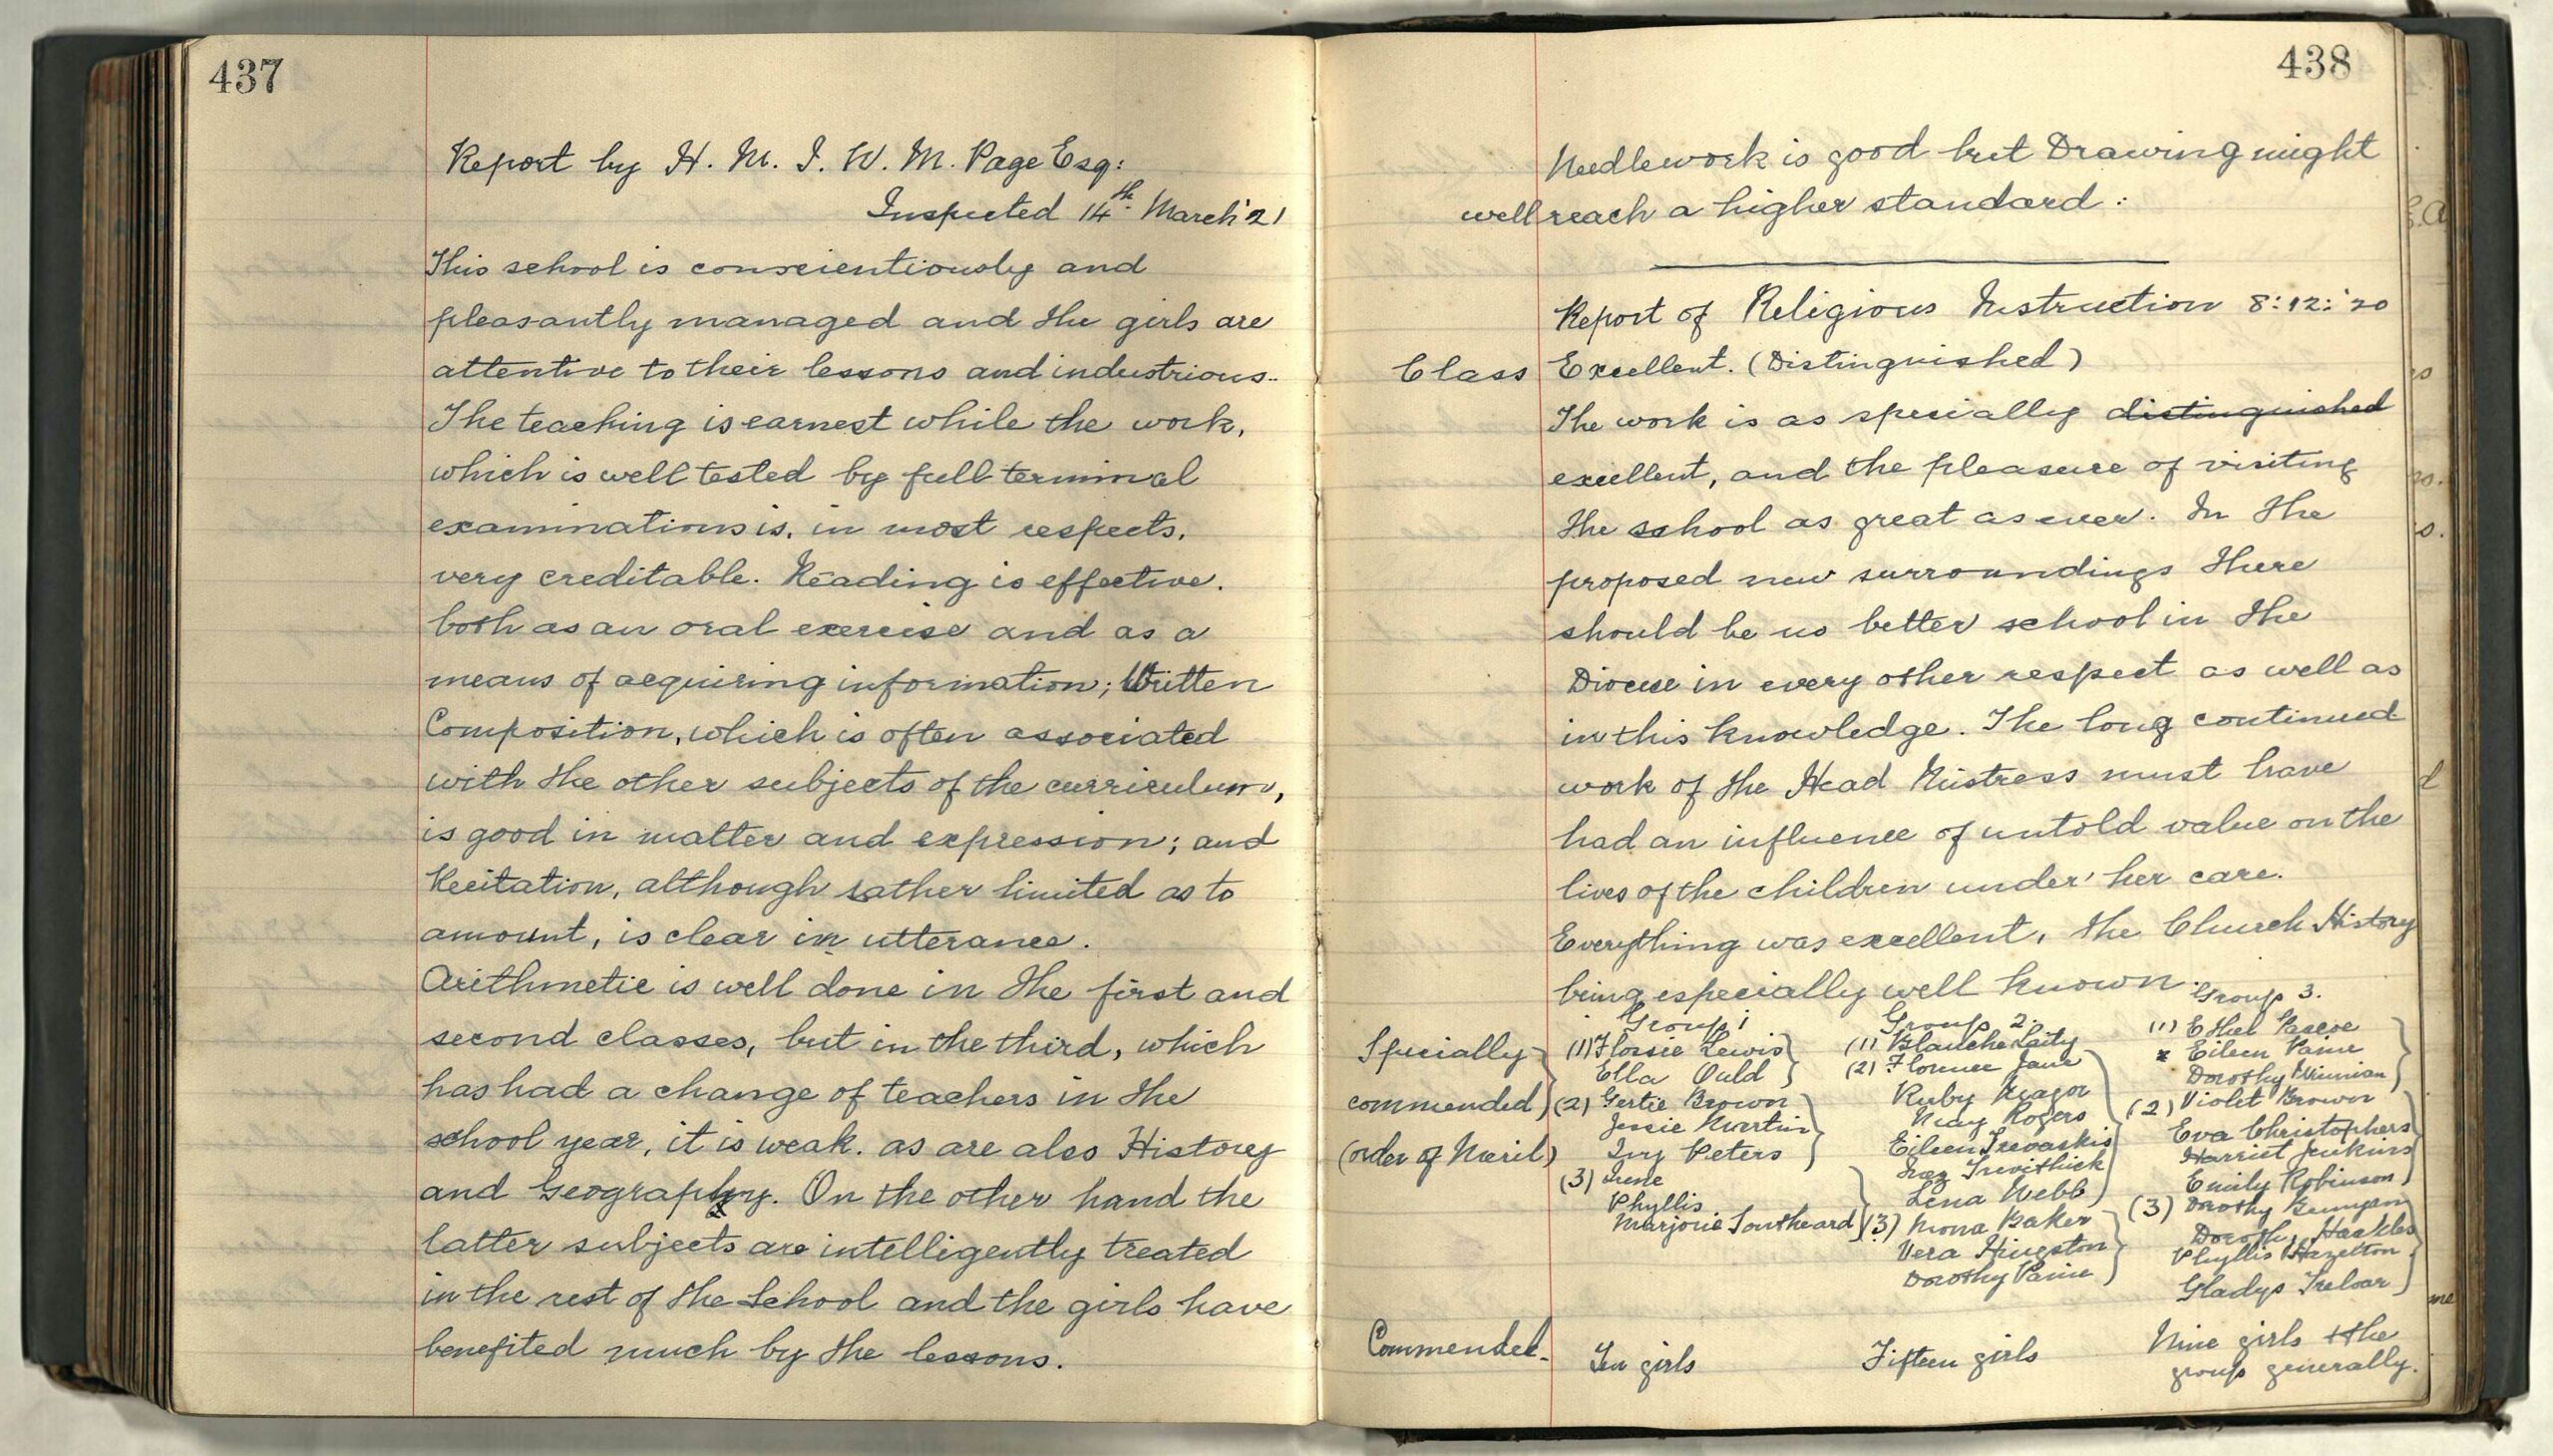 437
Report by H. M. I. W. M. Page Esq:
Inspected 14th March '21
This school is conscientiously and
pleasantly managed and the girls are
attentive to their lessons and industrious.
The teaching is earnest while the work,
which is well tested by full terminal
examinations is, in most respects,
very creditable. Reading is effective.
both as an oral exercise and as a
means of acquiring information; Written
Composition, which is often associated
with the other subjects of the curriculum,
is good in matter and expression; and
Recitation, although rather limited as to
amount, is clear in utterance.
Arithmetic is well done in the first and
second classes, but in the third, which
has had a change of teachers in the
school year, it is weak. as are also History
and Geography. On the other hand the
latter subjects are intelligently treated
in the rest of the School and the girls have
benefited much by the lessons.
438
Needlework is good but Drawing might
well reach a higher standard:
Report of Religious Instruction 8:12:'20
Class Excellent. (Distinguished)
The work is as specially distinguished
excellent, and the pleasure of visiting
the school as great as ever. In the
proposed new surroundings there
should be no better school in the
Diocese in every other respect as well as
in this knowledge. The long continued
work of the Head Mistress must have
had an influence of untold value on the
lives of the children under her care.
Everything was excellent, the Church History
being especially well known.
Specially
commended
(order of Merit)
Group 1
(1) Florrie Lewis
Ella Ould
(2) Gertie Brown
Jessie Martin
Ivy Peters
(3) Irene
Phyllis
Marjorie Southeard
Group 2.
(1) Blanche Laity
(2) Florence Jane
Ruby Magor
May Rogers
Eileen Trevaskis
Inez Trevithick
Lena Webb
(3) Mona Baker
Vera Hingston
Dorothy Paine
Group 3.
(1) Ethel Pascoe
x Eileen Paine
Dorothy Vivian
(2) Violet Brown
Eva Christophers
Harriet Jenkins
Emily Robinson
(3) Dorothy
Dorothy
Phyllis Hazelton
Gladys Treloar
Commended.
Ten girls
Fifteen girls
Nine girls & the
group generally.